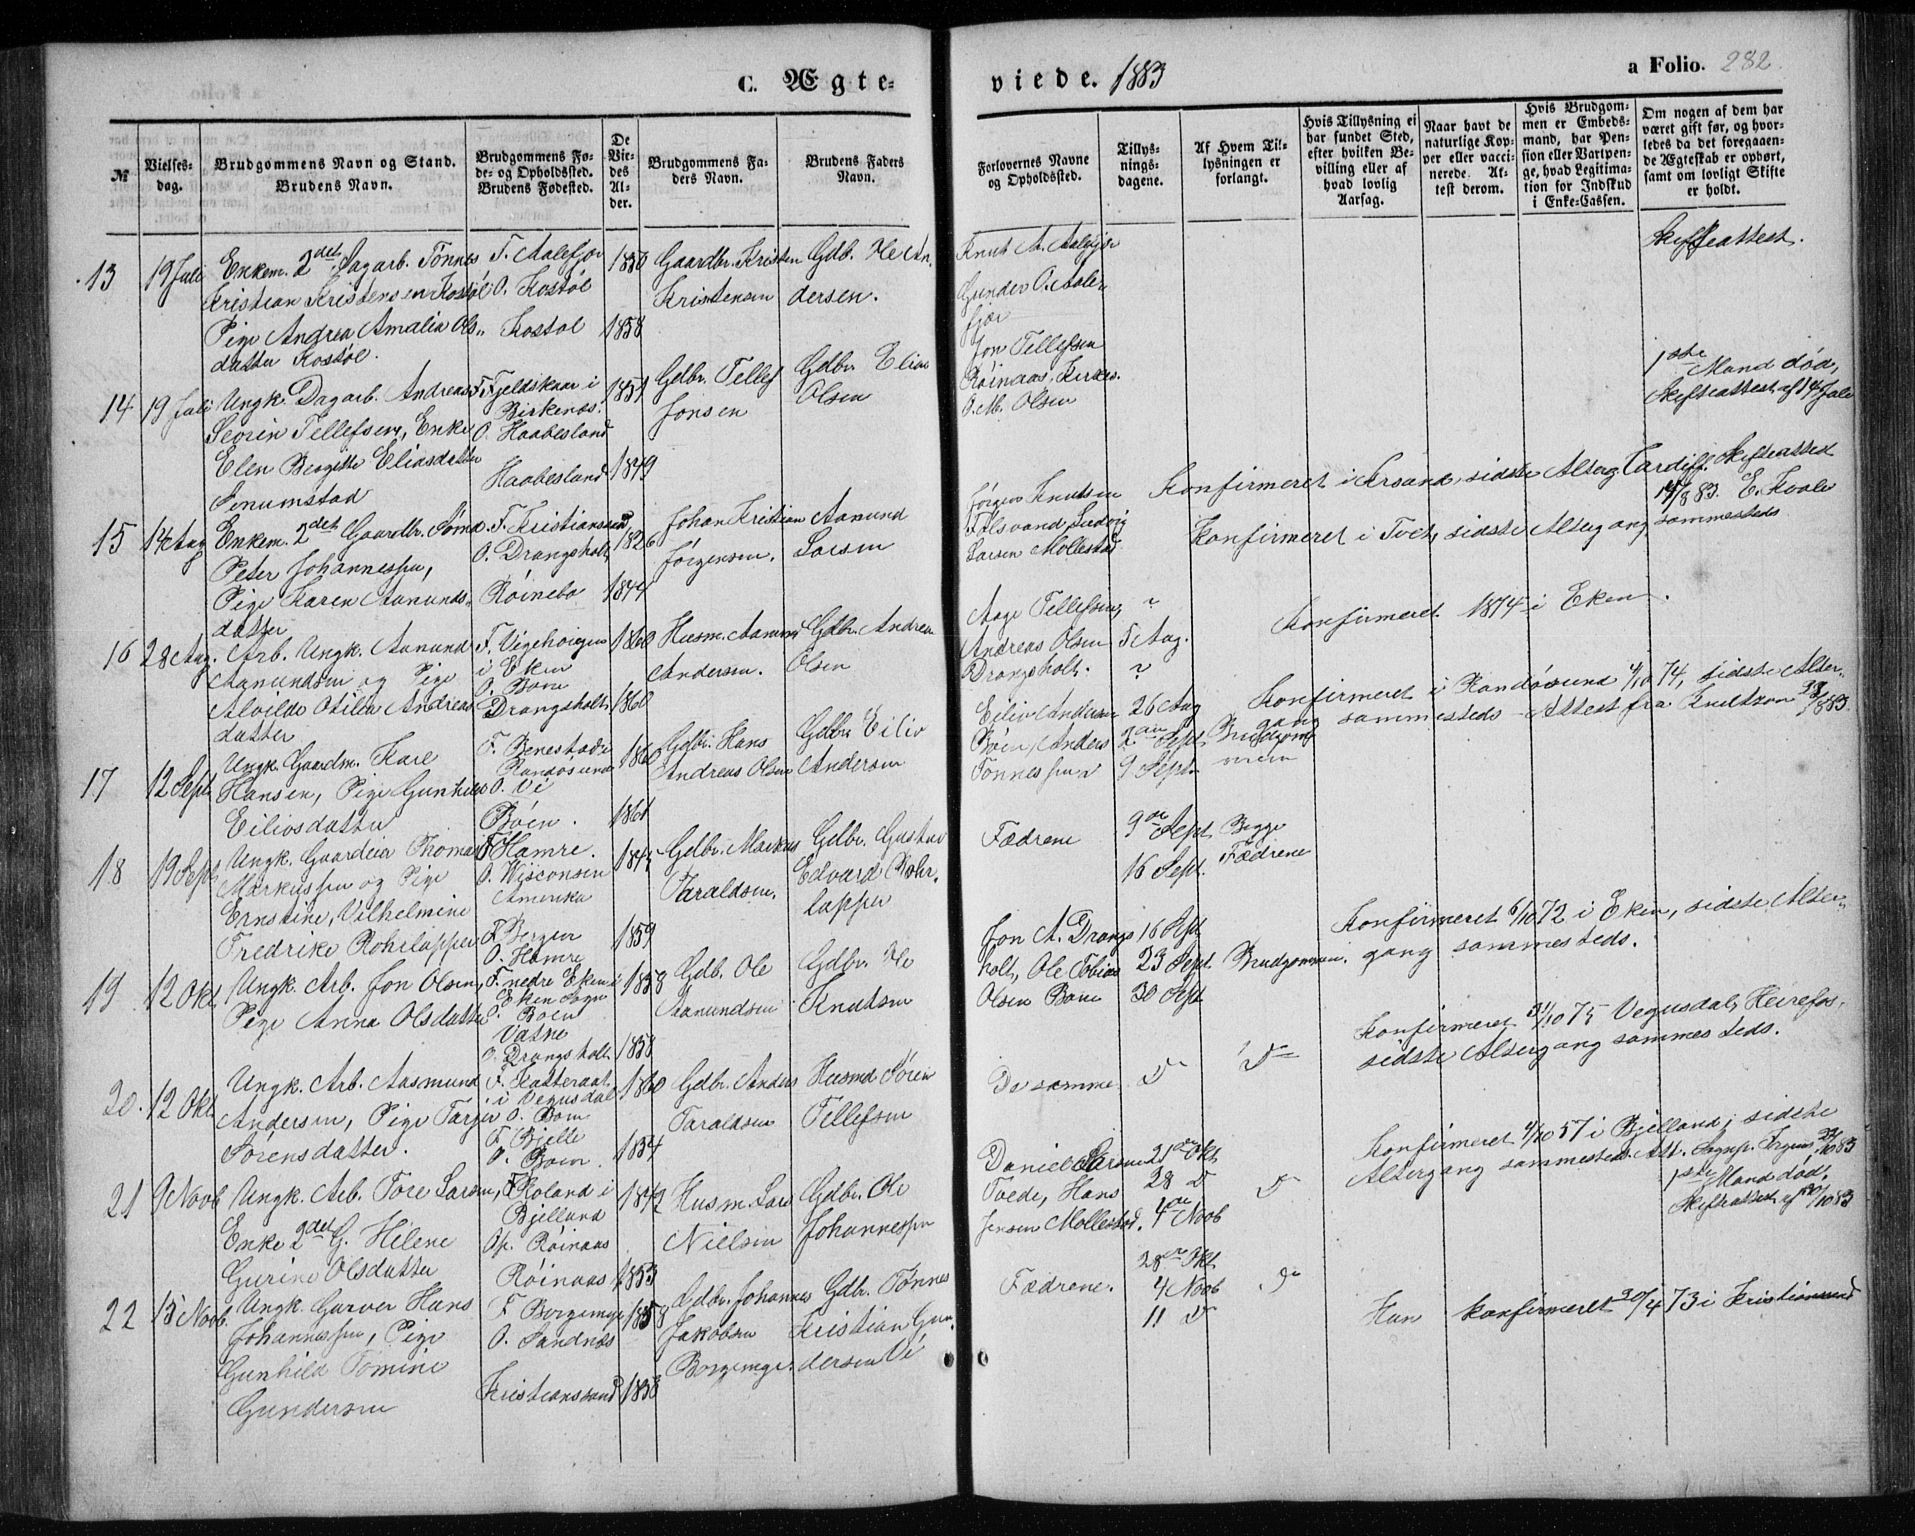 C. Ægte-
viede. 1883
a Folio. 282
№
Vielses-
dag.
Brudgommens Navn og Stand.
Brudens Navn.
Brudgommens Fø-
de- og Opholdssted.
Brudens Fødested.
De
Vie-
des
Al-
der.
Brudgommens Fa-
ders Navn.
Brudens Faders
Navn.
Forlovernes Navne
og Opholdssted.
Tillys-
nings-
dagene.
Af Hvem Til-
lysningen er
forlangt.
Hvis Tillysning ei
har fundet Sted,
efter hvilken Be-
villing eller af
hvad lovlig
Aarsag.
Naar havt de
naturlige Kop-
per eller vacci-
nerede. At-
test derom.
Hvis Brudgom-
men er Embeds-
mand, har Pen-
sion eller Vartpen-
ge, hvad Legitima-
tion for Indskud
i Enke-Cassen.
Om nogen af dem har
været gift før, og hvor-
ledes da det foregaaen-
de Ægteskab er ophørt,
samt om lovligt Skifte
er holdt.
13
19 Juli
Enkem. 2det Dagarb. Tønnes
Kristian Kristensen Kostøl
Pige Andrea Amalia Ols-
datter Kostøl.
F. Aalefjær
O. Kostøl
Kostøl
1850
1858
Gaardbr. Kristen
Kristensen
Gdb. Ole An-
dersen.
Knut A. Aalefjær
Gunder O. Aale-
fjær
Skifteattest.
14
19 Juli
Ungk. Dagarb. Andreas
Seorin Tellefsen, Enke
Elen Bergitte Eliasdatter
Senumstad
F. Fjeldskaar i
Birkenæs.
O. Haabesland
Haabesland
1851
1849
Gdbr. Tellef
Jonsen
Gdbr. Elias
Olsen
Jon Tellefsen
Røinaas, Kirkes.
O. M. Olsen
1ste Mand død,
Skifteattest af 14 Juli
15
14 Aug
Enkem. 2det Gaardbr.
Peter Johannessen,
Pige Karen Aanunds-
datter
F. Kristianssand
O. Drangsholt
Røinebo
1826
1844
Johan Kristian
Jørgensen.
Aanund
Larsen
Jørgen Knudsen
Ludvig
Larsen Mollestad
Konfirmeret i Krsand, sidste Alterg. Cardiff. Skifteattest
14/8 83. E. Kvale
Konfirmeret i Tveit, sidste Altergang sammesteds
16
28 Aug.
Arb. Ungk. Aanund
Aanundsen og Pige
Alvilde Otilia Andreas-
datter
F. Vigehoigen
i Eken
O. Boen
Drangsholt
1860
1860
Husm. Aanund
Andersen.
Gdbr. Andreas
Olsen
Aage Tellefsen,
Andreas Olsen
Drangsholt.
?
5 Aug.
?
Konfirmeret 1874 i Eken.
17
12 Sept
Ungk. Gaardm. Karl
Hansen, Pige Gunhild
Eiliosdatter
F. Benestad i
Randøsund
O. Ve
Boen.
1860
1861
Gdbr. Hans
Andreas Olsen
Gdbr. Eiliv
Andersen
Eiliv Andersen
Boen, Anders
Tønnessen
26 Aug
2den Sept
9 Sept
Brudgom-
men
Konfirmeret i Randøsund 4/10 74, sidste Alter-
gang sammesteds. Attest fra Knudtzon
18
19 Sept
Ungk. Gaardeier Thomas
Markussen og Pige
Ernstine, Vilhelmine
Fredrike Rohrlapper
F. Hamre.
O. Wisconsin
Amerika
F. Bergen
O. Hamre
1845
1859
Gdbr. Markus
Taraldsen.
Gdbr. Gustav
Edvard Rohr-
lapper
Fædrene
9de Sept
16 Sept.
Begge
Fædrene
19
12 Okt
Ungk. Arb. Jon Olsen,
Pige Anna Olsdatter
F. nedre Eken i
Eken Sogn
O. Boen
Vatne
O. Drangsholt
1858
1858
Gdb. Ole
Aanundsen
Gdbr. Ole
Knutsen
Jon A. Drangs-
holt, Ole Tobias
Olsen Boen
16 Sept
23 Sept
30 Sept
Brudgommen.
Konfirmeret 6/10 72 i Eken, sidste Alter-
gang sammesteds.
20.
12 Okt
Ungk. Arb. Aasmund
Andersen, Pige Torjer
Sørensdatter.
F. Katteraat
i Vegusdal
O. Boen
F. Bjelle
O. Boen.
1860
1854
Gdbr. Anders
Taraldsen
Husmd Søren
Tellefsen
De samme
Do
Do
Konfirmeret 31/10 75 Vegusdal, Heirefos,
sidste Altergang sammesteds.
21
9 Novb
Ungk. Arb. Tore Larsen,
Enke 2det G. Helene
Gurine Olsdatter
F. Roland i
Bjelland
Op. Røinaas
Røinaas
1842
1853
Husm. Lars
Nielsen
Gdbr. Ole
Johannessen
Daniel Larsen
Tvede, Hans
Jensen Mollestad.
21de Okt
28 Do
4de Novb
Do
Konfirmeret 4/10 57 i Bjelland, sidste
Altergang sammesteds. Att. Sognp.
1ste Mand død,
Skifteattest af 20/10 83
22
15 Novb.
Ungk. Garver Hans
Johannessen, Pige
Gunhild Tomine
Gundersen
F. Borgemyr
O. Sandnæs
Kristianssand
1858
1858
Gdbr. Johannes
Jakobsen
Borgemyr.
Gdbr. Tønnes
Kristian Gun-
dersen Ve
Fædrene.
28de Okt
4 Novb
11 Do
Do
Han konfirmeret 30/4 73 i Kristianssund